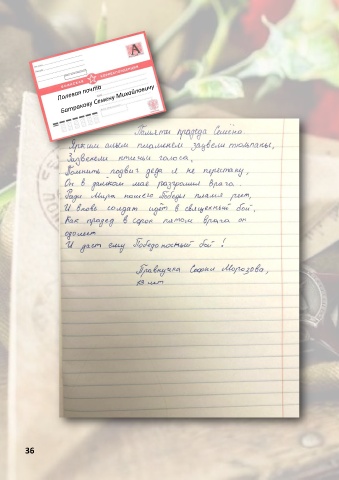 А
Полевая почта
Батракову Семену Михайловичу
Памяти прадеда Семёна
Ярким алым пламенем зацвели тюльпаны,
Зазвенели птичьи голоса,
Помнить подвиг деда я не перестану,
Он в далёком мае разгромил врага.
Ради Мира нашего Победы пламя
И вновь солдат идёт в священный бой,
Как прадед в сорок пятом врага он
одолеет
И даст ему Победоносный бой!
Правнучка София Морозова,
лет
36